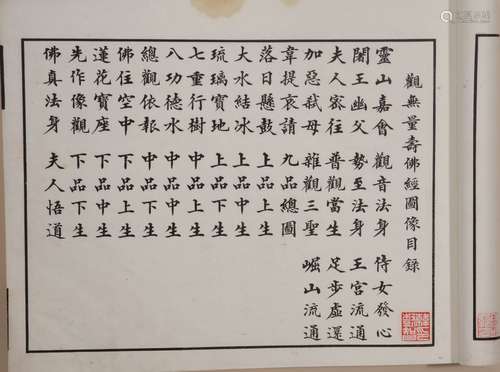 觀無量壽佛經圖像目錄
靈山嘉會 觀音法身 侍女發心
闍王幽父 勢至法身 王宮流通
夫人密往 普觀當生 足步虛還
加惡弒母 雜觀三聖 崛山流通
韋提哀請 九品總圖
落日懸鼓 上品上生
大水結冰 上品中生
琉璃寶地 上品下生
七重行樹 中品上生
八功德水 中品中生
總觀依報 中品下生
佛住空中 下品上生
蓮花寶座 下品中生
先作像觀 下品下生
佛真法身 夫人悟道